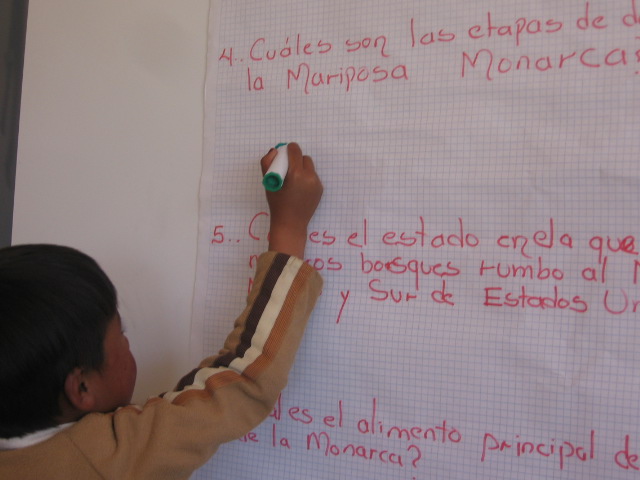 4.. Cuáles son las etapas de
la Mariposa Monarca
5.. es el estado enela que
bosques rumbo al
y Sur de Estados
es el alimento principal de
de la Monarca?